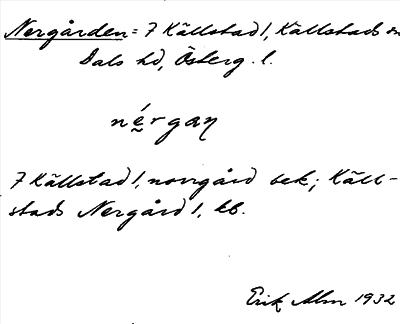 Nergården = 7 Källstad 1, Källstads sn
Dals hd, Österg. l.
nérgaṇ
7 Källstad 1, norrgård bek; Käll-
stads Nergård 1, kb.
Erik Alm 1932